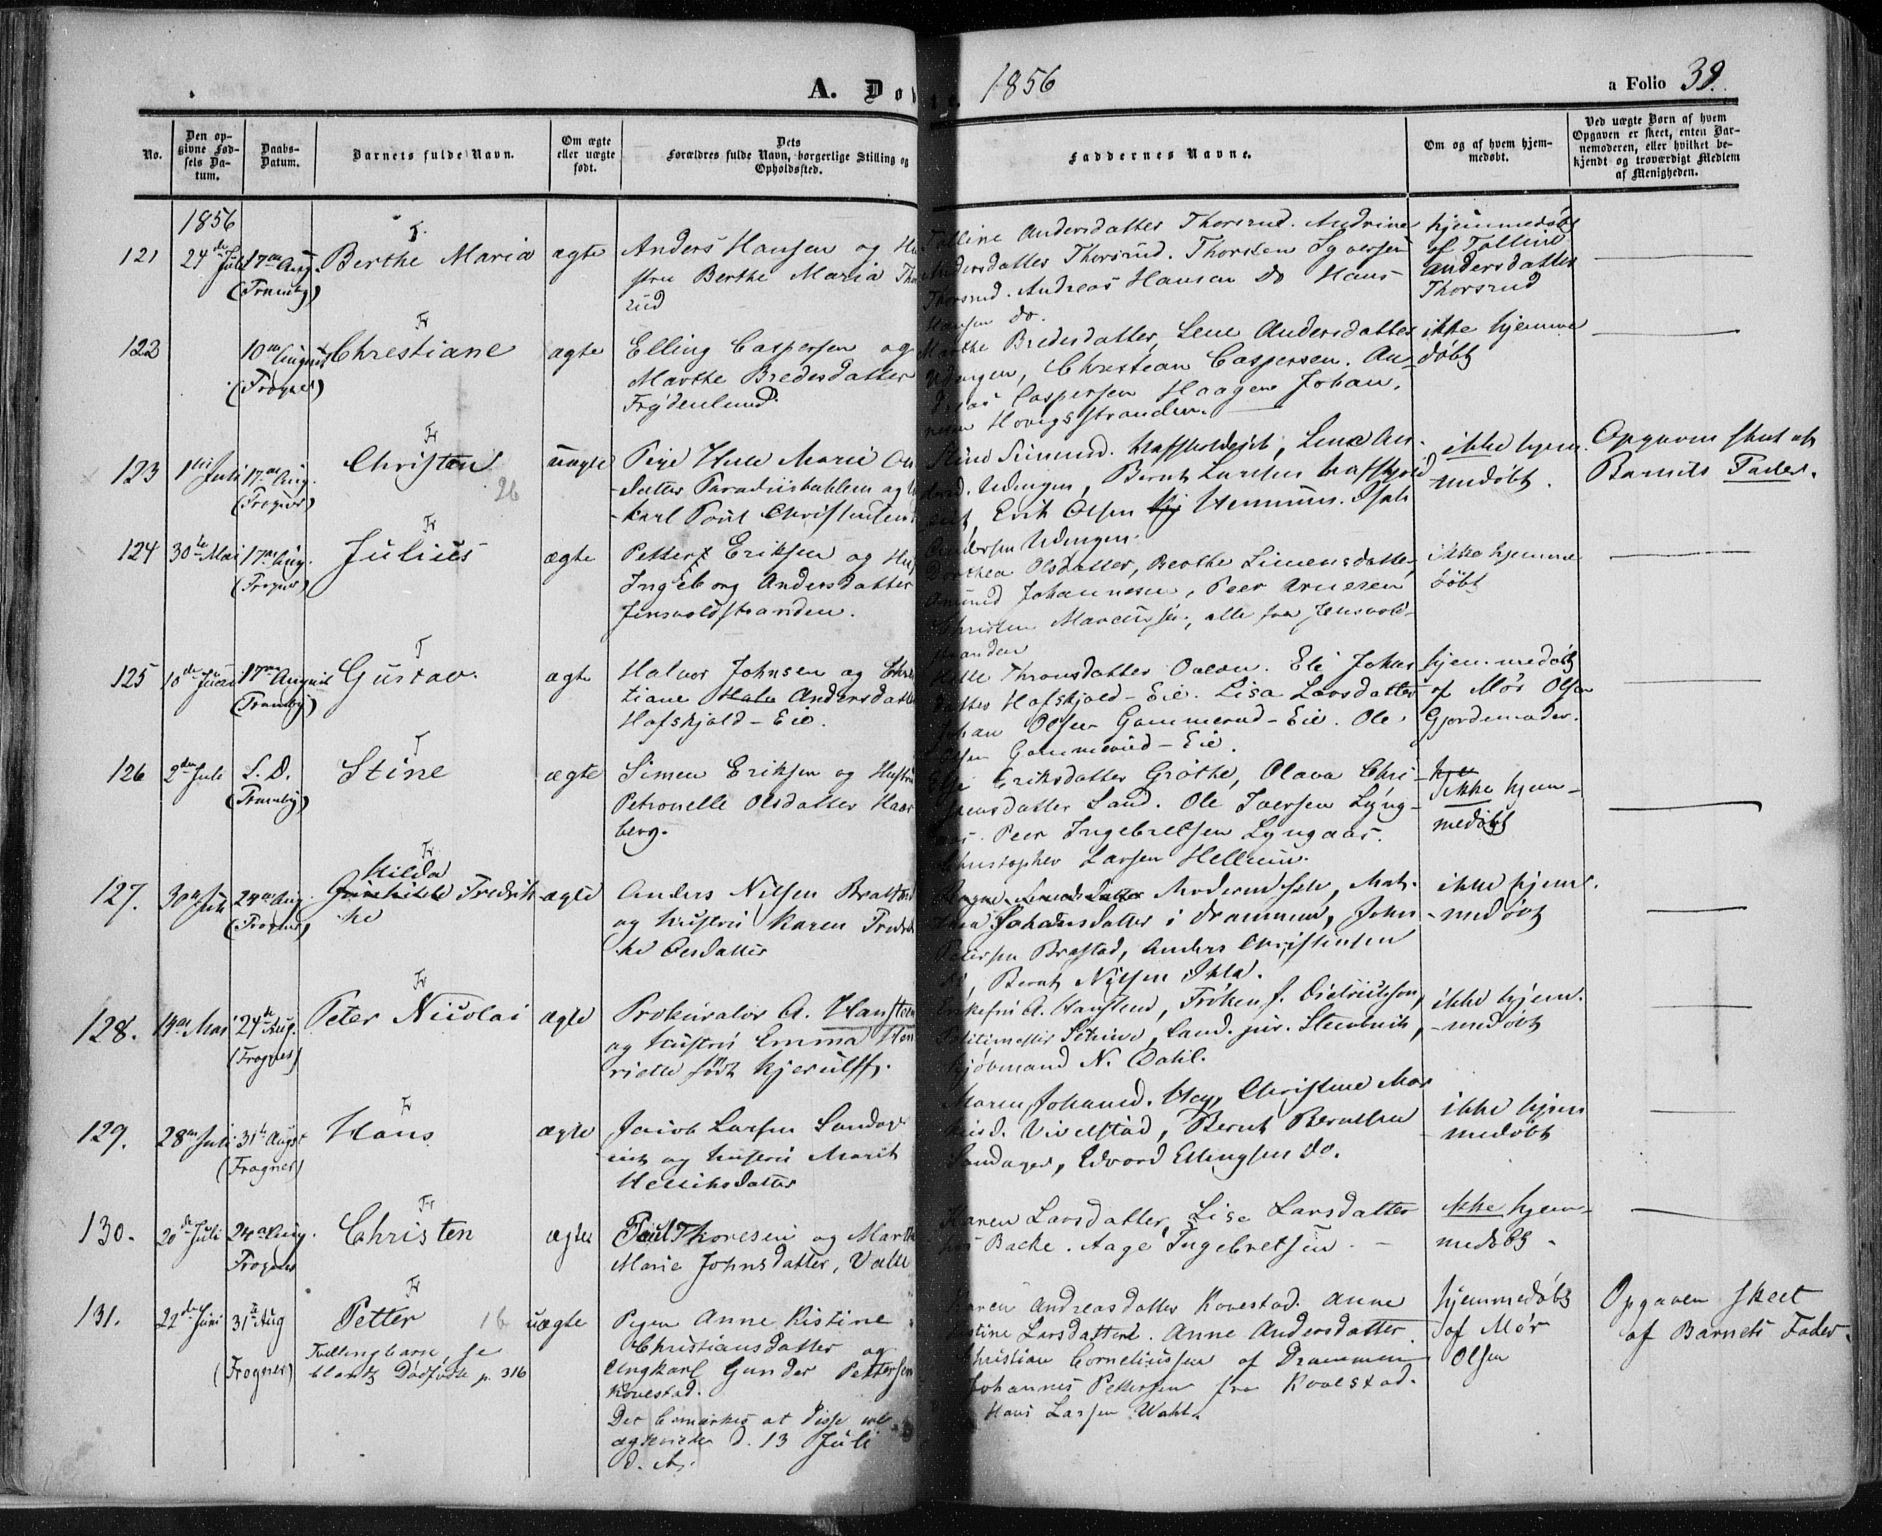 A. Do
1856
a Folio 39.
No.
Den op-
givne Fød-
sels Da-
tum.
Daabs-
Datum.
Barnets fulde Navn.
Om ægte
eller uægte
født.
Dets
Forældres fulde Navn, borgerlige Stilling og
Opholdssted.
Faddernes Navne.
Om og af hvem hjem-
medøbt.
Ved uægte Børn af hvem
Opgaven er skeet, enten Bar-
nemoderen, eller hvilket be-
kjendt og troværdigt Medlem
af Menigheden.
1856
T.
121
24de Juli
17de Aug.
(Tranby)
Berthe Maria
ægte
Anders Hansen og Hu
stru Berthe Maria Tho
rud
Andersdatter Thorsrud. Andrine
Andersdatter Thorsrud. Thorsten
Thorsrud. Andreas Hansen Do Hans
Hansen do.
hjemmedøbt
af Tolline
Andersdatter
Thorsrud
122
10de August
(Frogner)
Fr
Chrestiane
ægte
Elling Caspersen og
Marthe Bredesdatter
Frydenlund.
Marthe Bredesdatter, Lene Andersdatter
Udengen, Christian Caspersen. An-
dreas Caspersen Haagen Johan.
Hovigsstranden.
ikke hjemme
døbt
123
1ste Juli
17de Aug.
(Frogner)
Fr
Christen
26
uægte
Pige Helle Marie Ols
datter Paradisbakken og U
-karl Poul Christensen
Lene An-
dersd. Udengen, Bernt Larsen
Erik Olsen Hennum. Isak
Andersen Udengen.
ikke hjem.
medøbt.
Opgaven skeet af
Barnets Fader.
124
30te Mai
17de Aug.
(Frogner)
Fr
Julius
ægte
Petter Eriksen og Hus
Ingeborg Andersdatter
Jensvoldstranden.
Dorthea Olsdatter, Berthe Simensdatter
Amund Johannesen, Peer Arnesen
Christen alle fra Jensvold-
stranden
ikke hjemme
døbt
125
10de Juni
17de August
(Tranby)
T
Gustav.
ægte
Halvor Johnsen og Chris
tiane Andersdatt
Hafskjold-Eie.
Helle Thronsdatter Eli Johns
datter Hafskjold-Eie. Lisa Larsdatter
Johan Olsen Gommerud-Eie. Ole
Olsen Gommerud-Eie.
hjemmedøbt
af Mør Olsen
Gjordemoder.
126
2den Juli
S. D.
(Tranby)
T
Stine
ægte
Simen Eriksen og Hustru
Petronelle Olsdatter Haar
berg.
Eriksdatter Grøthe, Olava Chri-
stensdatter Sand. Ole Iversen Lyng-
aas. Peer Ingebretsen Lyngaas.
Christopher Larsen Hellum.
Ikke hjem-
medøbt
127.
30te Juli
24de Aug.
(Frogner)
Fr
Hilda
Fredrik-
ke
ægte
Anders Nilsen Bra
og Hustru Karen Fredrik
ke Olsdatter
Moderen selv, Mat-
hea Johansdatter i Drammen, John
Petersen Brastad, Anders Christensen
do, Bernt Nilsen
ikke hjem.
-medøbt
128.
14de Mai
24de Aug.
(Frogner)
Fr
Peter Nicolai
ægte
Prokurator A. Hansteen
og Hustru Emma Hen
riette født Kjerulff.
Enkefru A. Hansteen, Frøken J. Dietrichson,
Politimester Cand. jur.
Kjøbmand N. Dahl.
ikke hjem.
-medøbt
129.
28de Juli
31te August
(Frogner)
Fr
Hans
ægte
Jacob Larsen Sandag
og Hustru Marit
Henriksdatter
Maren Johansd. Christine Mar
Vivelstad, Bernt Berntsen
Sandager, Edvard Ellingsen do.
ikke hjem
medøbt
130.
20de Juli
24de Aug.
Frogner
Fr
Christen
ægte
Poul Thoresen og Marth
Marie Johnsdatter, Valle
Karen Larsdatter, Lise Larsdatter
Bache. Aage Ingebretsen.
ikke hjem-
medøbt.
131.
22de Juni
31te Aug
(Frogner)
Fr
Petter
16
Tvillingbarn, se
blandt Dødfødte p. 316
uægte
Pigen Anne Kistine
Christiansdatter og
Ungkarl Gunder Pettersen
Kovestad.
Det bemærkes at disse
ægteviede d. 13 Juli
d. A.
Karen Andreasdatter Kovestad. Anne
Kistine Larsdatter. Anne Andersdatter
Christian Corneliussen af Drammen
Johannes Pettersen fra Kovestad.
Hans Larsen
hjemmedøbt
af Mør
Olsen
Opgaven skeet
af Barnets Fader.